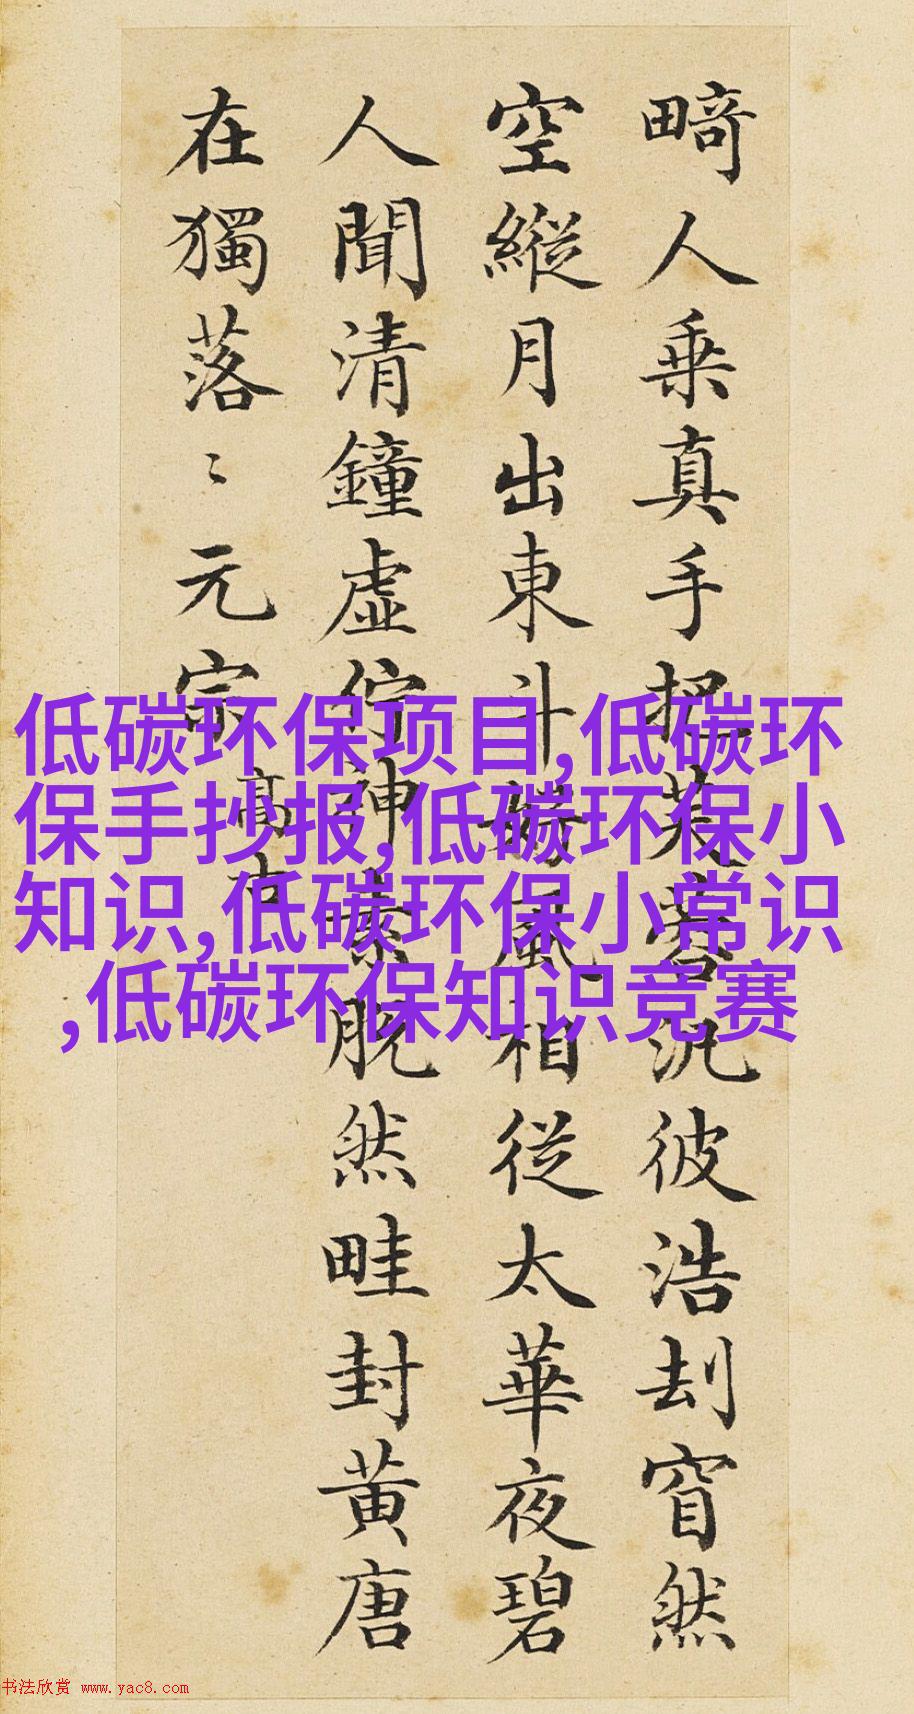 畸人乗真手把芙蓉汎彼浩刦窅然
空縱月出東斗好風相從太華夜碧
人聞清鐘虚佇神素脱然畦封黄唐
在獨落〻元宗
高古
低碳环保项目,低碳环
保手抄报,低碳环保小
知识,低碳环保小常识
,低碳环保知识竞赛
书法欣赏 www.yac8.com